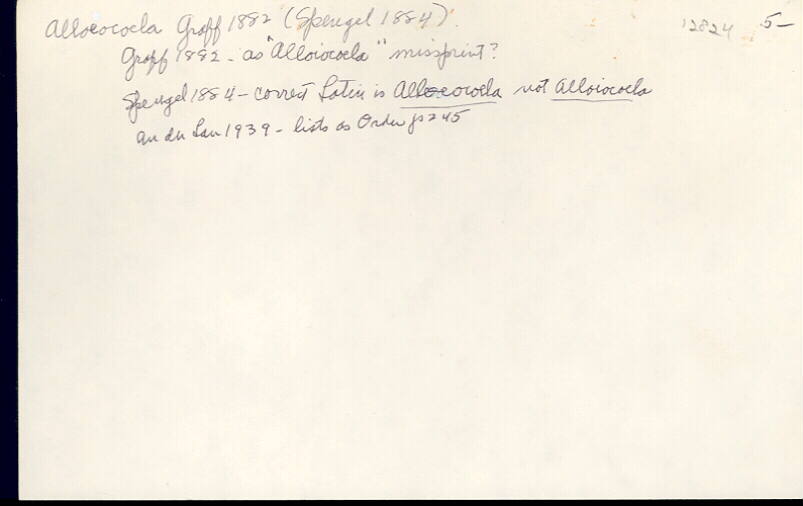 Alloeocoela Graff 1882 (Spengel 1884). 12824 5-
Graff 1882 - as "Alloiocoela" missprint?
Spengel 1884 - correct Latin is Alloeocoela not Alloiocoela
an der Lan 1939 - lists as Order p 245